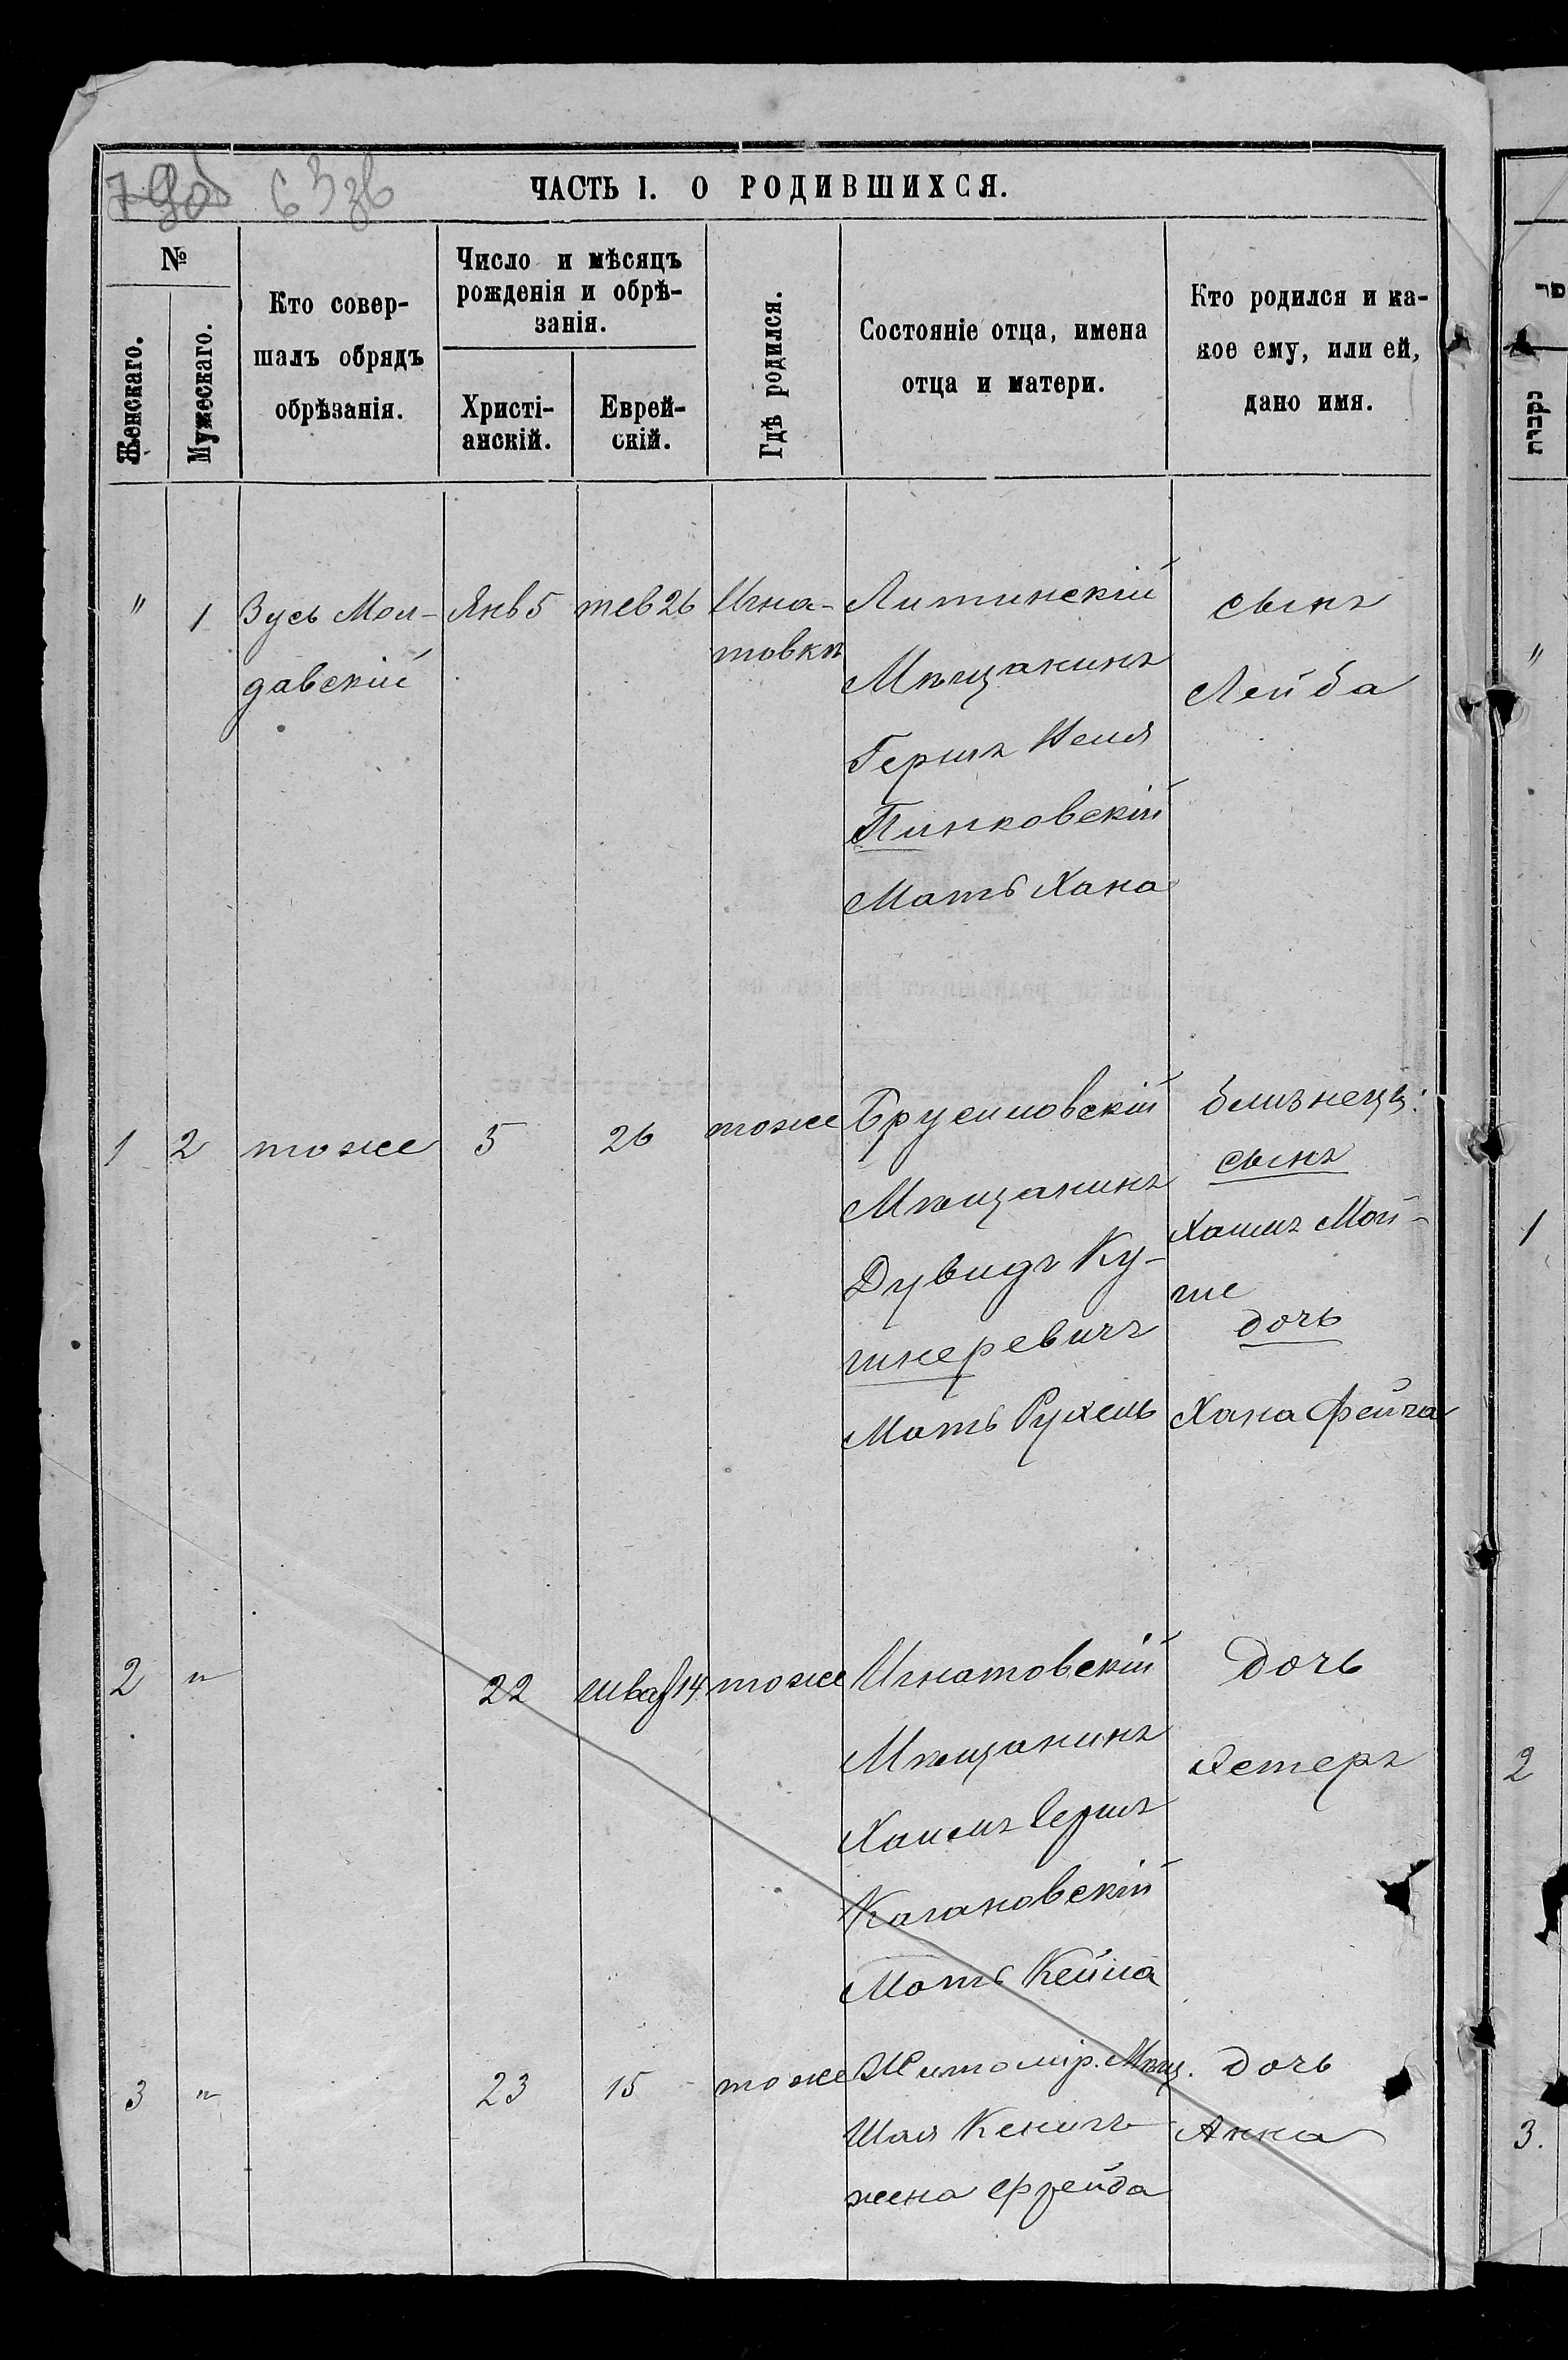 ЧАСТЬ I. О РОДИВШИХСЯ.
№
Женскаго.
Мужескаго.
Кто совер-
шалъ обрядъ
обрѣзанія.
Число и мѣсяцъ
рожденія и обрѣ-
занія.
Христі-
анскій.
Еврей-
скій.
Гдѣ родился.
Состояніе отца, имена
отца и матери.
Кто родился и ка-
кое ему, или ей,
дано имя.
" 1
Зусь Мол-
давскій
Янв 5
тев 26
Игна-
товкѣ
Литинскій
Мѣщанинъ
Гершъ
Пинковскій
Мать Хана
сынъ
Лейба
1 2
тоже
5
26
тоже
Брусиловскій
Мѣщанинъ
Дувидъ Ку-
шнеревичъ
Мать Рухель
близнецы:
сынъ
Хаимъ Мой-
ше
дочь
Хана Фейга
2 "
22
шват 14
тоже
Игнатовскій
Мѣщанинъ
Хаимъ Гершъ
Кагановскій
Мать Кейла
Дочь
Эстеръ
3 "
23
15
тоже
Житомір. Мѣщ.
Шая Кенигъ
жена Фрейда
Дочь
Анна
נקבות
"
1
2
3.